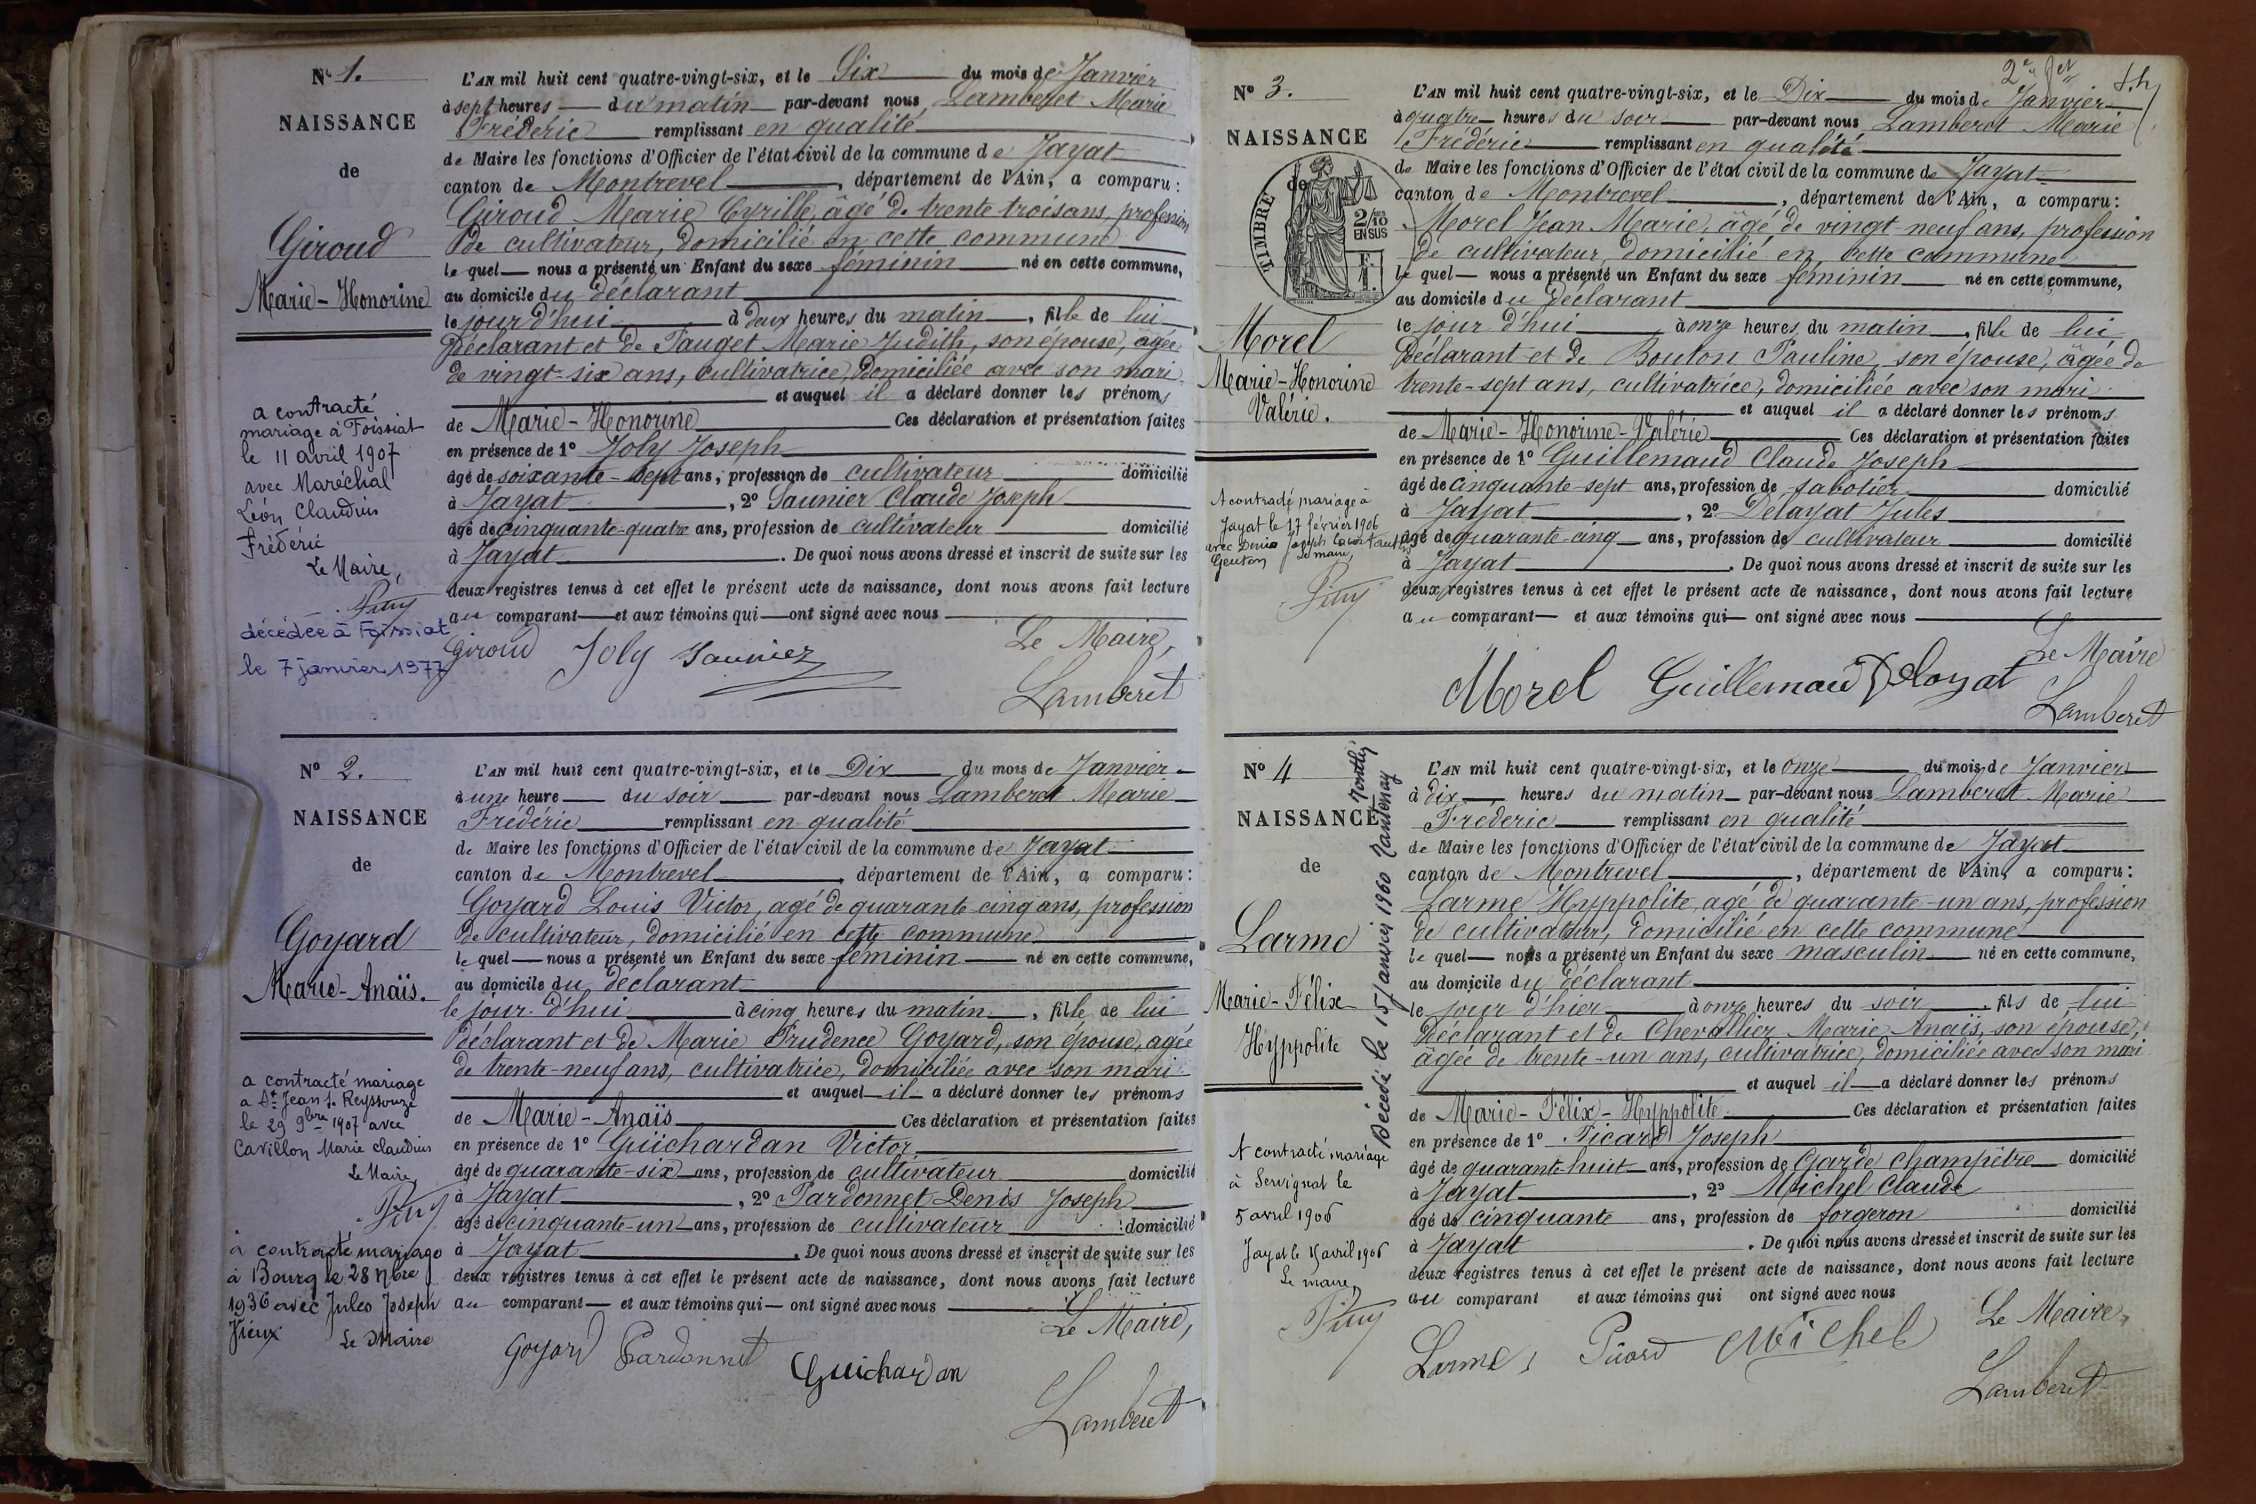 N° 1.
NAISSANCE
de
Giroud
Marie-Honorine
a contracté
mariage à Foissiat
le 11 avril 1907
avec Maréchal
Léon Claudius
Frédéric
Le Maire,
décédée à Foissiat
le 7 janvier 1977
L'AN mil huit cent quatre-vingt-six, et le Six du mois de Janvier
à sept heures du matin par-devant nous Lamberet Marie
Frédéric remplissant en qualité
de Maire les fonctions d'Officier de l'état civil de la commune de Jayat
canton de Montrevel, département de l'Ain, a comparu:
Giroud Marie Cyrille, âgé de trente trois ans, profession
de cultivateur, domicilié en cette commune
lequel nous a présenté un Enfant du sexe féminin né en cette commune,
au domicile du déclarant
le jour d'hui à deux heures du matin, fille de lui
déclarant et de Pauget Marie Judith, son épouse, âgée
de vingt-six ans, cultivatrice, domiciliée avec son mari
et auquel il a déclaré donner les prénoms
de Marie-Honorine Ces déclaration et présentation faites
en présence de 1° Joly Joseph
âgé de soixante-sept ans, profession de cultivateur domicilié
à Jayat, 2° Saunier Claude Joseph
âgé de cinquante-quatre ans, profession de cultivateur domicilié
à Jayat. De quoi nous avons dressé et inscrit de suite sur les
deux registres tenus à cet effet le présent acte de naissance, dont nous avons fait lecture
au comparant et aux témoins qui ont signé avec nous
Giroud Joly Saunier Le Maire,
Lamberet
N° 2.
NAISSANCE
de
Goyard
Marie-Anaïs.
a contracté mariage
a St Jean s. Reyssouze
le 29 9bre 1907 avec
Cavillon Marie Claudius
Le Maire
a contracté mariage
à Bourg le 28 Nbre
1936 avec Jules Joseph
Vieux
Le Maire
L'AN mil huit cent quatre-vingt-six, et le Dix du mois de Janvier
à une heure du soir par-devant nous Lamberet Marie
Frédéric remplissant en qualité
de Maire les fonctions d'Officier de l'état civil de la commune de Jayat
canton de Montrevel, département de l'Ain, a comparu:
Goyard Louis Victor, agé de quarante cinq ans, profession
de cultivateur, domicilié en cette commune
lequel nous a présenté un Enfant du sexe féminin né en cette commune,
au domicile du déclarant
le jour d'hui à cinq heures du matin, fille de lui
déclarant et de Marie Prudence Goyard, son épouse, agée
de trente-neuf ans, cultivatrice, domiciliée avec son mari
et auquel il a déclaré donner les prénoms
de Marie-Anaïs Ces déclaration et présentation faites
en présence de 1° Guichardan Victor
âgé de quarante-six ans, profession de cultivateur domicilié
à Jayat, 2° Pardonnet Denis Joseph
âgé de cinquante-un ans, profession de cultivateur domicilié
à Jayat. De quoi nous avons dressé et inscrit de suite sur les
deux registres tenus à cet effet le présent acte de naissance, dont nous avons fait lecture
au comparant et aux témoins qui ont signé avec nous
Le Maire,
Goyard Pardonnet Guichardan
Lamberet
2e
N° 3.
NAISSANCE
de
TIMBRE
2/10
EN SUS
Morel
Marie-Honorine
Valérie.
A contracté mariage à
Jayat le 17 février 1906
avec Denis Joseph
Le maire,
L'AN mil huit cent quatre-vingt-six, et le Dix du mois de Janvier
à quatre heures du soir par-devant nous Lamberet Marie
Frédéric remplissant en qualité
de Maire les fonctions d'Officier de l'état civil de la commune de Jayat
canton de Montrevel, département de l'Ain, a comparu:
Morel Jean Marie, âgé de vingt-neuf ans, profession
de cultivateur, domicilié en cette commune
lequel nous a présenté un Enfant du sexe féminin né en cette commune,
au domicile du déclarant
le jour d'hui à onze heures du matin, fille de lui
déclarant et de Bouton Pauline, son épouse, âgée de
trente-sept ans, cultivatrice, domiciliée avec son mari
et auquel il a déclaré donner les prénoms
de Marie-Honorine-Valérie Ces déclaration et présentation faites
en présence de 1° Guillemaud Claude Joseph
âgé de cinquante-sept ans, profession de sabotier domicilié
à Jayat, 2° Delayat Jules
âgé de quarante-cinq ans, profession de cultivateur domicilié
à Jayat. De quoi nous avons dressé et inscrit de suite sur les
deux registres tenus à cet effet le présent acte de naissance, dont nous avons fait lecture
au comparant et aux témoins qui ont signé avec nous
Le Maire
Morel Guillemaud Delayat
Lamberet
N° 4
NAISSANCE
de
Larme
Marie-Félix
Hyppolite
Décédé le 15 Janvier 1960
A contracté mariage
à Servignat le
5 avril 1906
Jayat le 15 avril 1906
Le maire
L'AN mil huit cent quatre-vingt-six, et le onze du mois de Janvier
à dix heures du matin par-devant nous Lamberet Marie
Frédéric remplissant en qualité
de Maire les fonctions d'Officier de l'état civil de la commune de Jayat
canton de Montrevel, département de l'Ain, a comparu:
Larme Hyppolite, agé de quarante-un ans, profession
de cultivateur, domicilié en cette commune
lequel nous a présenté un Enfant du sexe masculin né en cette commune,
au domicile du déclarant
le jour d'hier à onze heures du soir, fils de lui
déclarant et de Chevallier Marie Anaïs, son épouse,
agée de trente-un ans, cultivatrice, domiciliée avec son mari
et auquel il a déclaré donner les prénoms
de Marie-Félix-Hyppolite Ces déclaration et présentation faites
en présence de 1° Picard Joseph
âgé de quarante-huit ans, profession de Garde champêtre domicilié
à Jayat, 2° Michel Claude
âgé de cinquante ans, profession de forgeron domicilié
à Jayat. De quoi nous avons dressé et inscrit de suite sur les
deux registres tenus à cet effet le présent acte de naissance, dont nous avons fait lecture
au comparant et aux témoins qui ont signé avec nous
Le Maire,
Larme Picard Michel
Lamberet